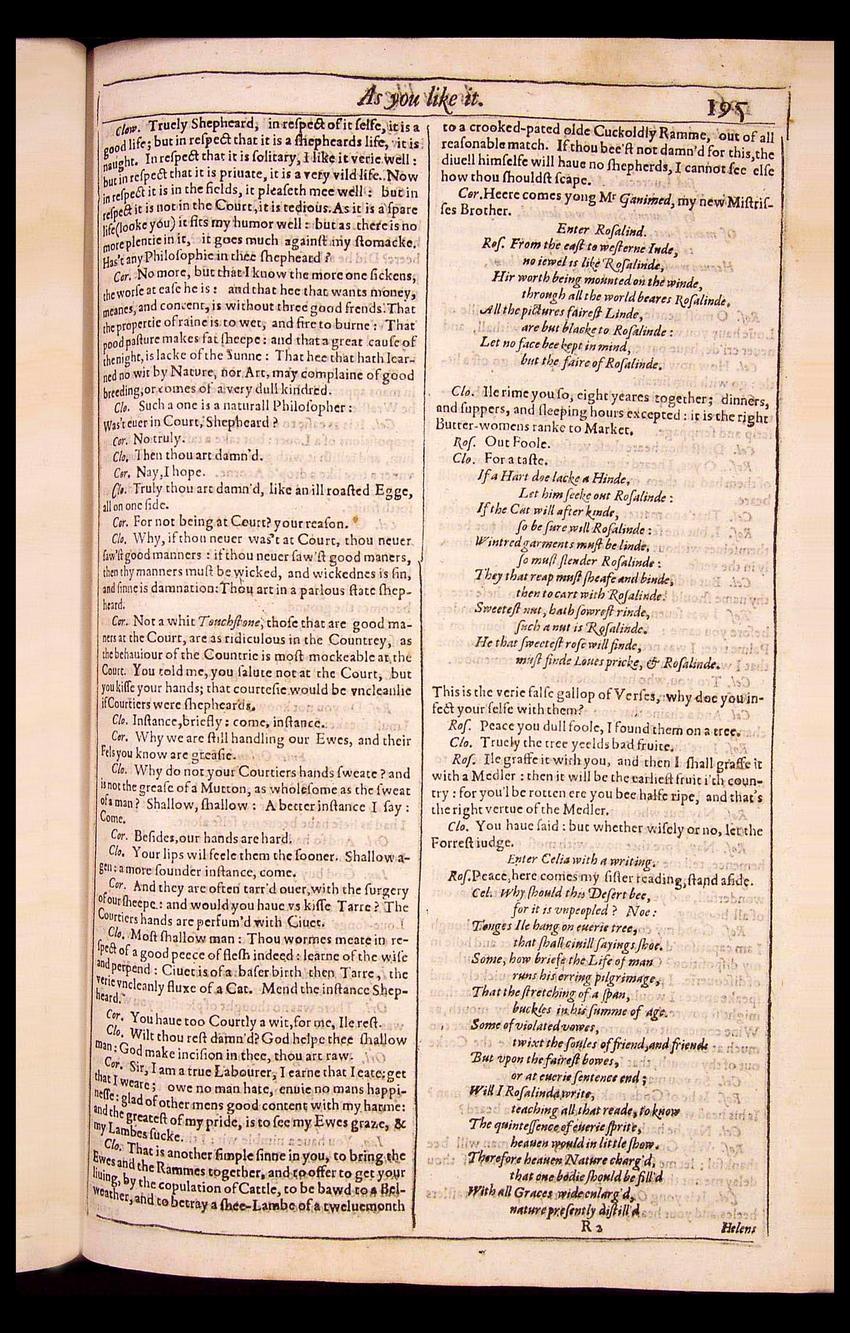 As you like it.
195
Clow. Truely Shepheard, in respect of it selfe, it is a
good life; but in respect that it is a shepheards life, it is
naught. In respect that it is solitary, I like it verie well:
but in respect that it is priuate, it is a very vild life. Now
in respect it is in the fields, it pleaseth mee well: but in
respect it is not in the Court, it is tedious. As it is a spare
life (looke you) it fits my humor well: but as there is no
more plentie in it, it goes much against my stomacke.
Has't any Philosophie in thee shepheard?
Cor. No more, but that I know the more one sickens,
the worse at ease he is: and that hee that wants money,
meanes, and content, is without three good frends. That
the propertie of raine is to wet, and fire to burne: That
pood pasture makes fat sheepe: and that a great cause of
the night, is lacke of the Sunne: That hee that hath lear-
ned no wit by Nature, nor Art, may complaine of good
breeding, or comes of a very dull kindred.
Clo. Such a one is a naturall Philosopher:
Was't euer in Court, Shepheard?
Cor. No truly.
Clo. Then thou art damn'd.
Cor. Nay, I hope.
Clo. Truly thou art damn'd, like an ill roasted Egge,
all on one side.
Cor. For not being at Court? your reason.
Clo. Why, if thou neuer was't at Court, thou neuer
saw'st good manners: if thou neuer saw'st good maners,
then thy manners must be wicked, and wickednes is sin,
and sinne is damnation: Thou art in a parlous state shep-
heard.
Cor. Not a whit Touchstone, those that are good ma-
ners at the Court, are as ridiculous in the Countrey, as
the behauiour of the Countrie is most mockeable at the
Court. You told me, you salute not at the Court, but
you kisse your hands; that courtesie would be vncleanlie
if Courtiers were shepheards.
Clo. Instance, briefly: come, instance.
Cor. Why we are still handling our Ewes, and their
Fels you know are greasie.
Clo. Why do not your Courtiers hands sweate? and
is not the grease of a Mutton, as wholesome as the sweat
of a man? Shallow, shallow: A better instance I say:
Come.
Cor. Besides, our hands are hard.
Clo. Your lips wil feele them the sooner. Shallow a-
gen: a more sounder instance, come.
Cor. And they are often tarr'd ouer, with the surgery
of our sheepe: and would you haue vs kisse Tarre? The
Courtiers hands are perfum'd with Ciuet.
Clo. Most shallow man: Thou wormes meate in re-
spect of a good peece of flesh indeed: learne of the wise
and perpend: Ciuet is of a baser birth then Tarre, the
verie vncleanly fluxe of a Cat. Mend the instance Shep-
heard.
Cor. You haue too Courtly a wit, for me, Ile rest.
Clo. Wilt thou rest damn'd? God helpe thee shallow
man: God make incision in thee, thou art raw.
Cor. Sir, I am a true Labourer, I earne that I eate: get
that I weare; owe no man hate, enuie no mans happi-
nesse: glad of other mens good content with my harme:
and the greatest of my pride, is to see my Ewes graze, &
my Lambes sucke.
Clo. That is another simple sinne in you, to bring the
Ewes and the Rammes together, and to offer to get your
liuing, by the copulation of Cattle, to be bawd to a Bel-
weather, and to betray a shee-Lambe of a twelucmonth
to a crooked-pated olde Cuckoldly Ramme, out of all
reasonable match. If thou bee'st not damn'd for this, the
diuell himselfe will haue no shepherds, I cannot see else
how thou shouldst scape.
Cor. Heere comes yong Mr Ganimed, my new Mistris-
ses Brother.
Enter Rosalind.
Ros. From the east to westerne Inde,
no iewel is like Rosalinde,
Hir worth being mounted on the winde,
through all the world beares Rosalinde.
All the pictures fairest Linde,
are but blacke to Rosalinde:
Let no face bee kept in mind,
but the faire of Rosalinde.
Clo. Ile rime you so, eight yeares together; dinners,
and suppers, and sleeping hours excepted: it is the right
Butter-womens ranke to Market.
Ros. Out Foole.
Clo. For a taste.
If a Hart doe lacke a Hinde,
Let him seeke out Rosalinde:
If the Cat will after kinde,
so be sure will Rosalinde:
Wintred garments must be linde,
so must slender Rosalinde:
They that reap must sheafe and binde,
then to cart with Rosalinde.
Sweetest nut, hath sowrest rinde,
such a nut is Rosalinde.
He that sweetest rose will finde,
must finde Loues pricke, & Rosalinde.
This is the verie false gallop of Verses, why doe you in-
fect your selfe with them?
Ros. Peace you dull foole, I found them on a tree.
Clo. Truely the tree yeelds bad fruite.
Ros. Ile graffe it with you, and then I shall graffe it
with a Medler: then it will be the earliest fruit i'th coun-
try: for you'l be rotten ere you bee halfe ripe, and that's
the right vertue of the Medler.
Clo. You haue said: but whether wisely or no, let the
Forrest iudge.
Enter Celia with a writing.
Ros. Peace, here comes my sister reading, stand aside.
Cel. Why should this Desert bee,
for it is vnpeopled? Noe:
Tonges Ile hang on euerie tree,
that shall ciuill sayings shoe.
Some, how briefe the Life of man
runs his erring pilgrimage,
That the stretching of a span,
buckles in his summe of age.
Some of violated vowes,
twixt the soules of friend, and friend:
But vpon the fairest bowes,
or at euerie sentence end;
Will I Rosalinda write,
teaching all that reade, to know
The quintessence of euerie sprite,
heauen would in little show.
Therefore heauen Nature charg'd,
that one bodie should be fill'd
With all Graces wide enlarg'd,
nature presently distill'd
R 2
Helens